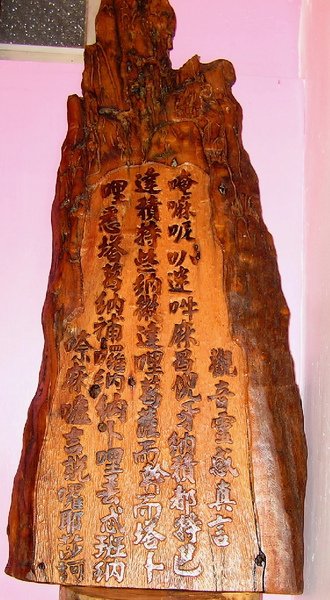 觀音靈感真言
唵嘛呢叭迷吽麻曷倪牙納積都特巴
達積特些納微達哩葛薩而斡而塔卜
哩悉塔葛納補囉納納卜哩丟忒班納
麻嚧吉說囉耶莎訶